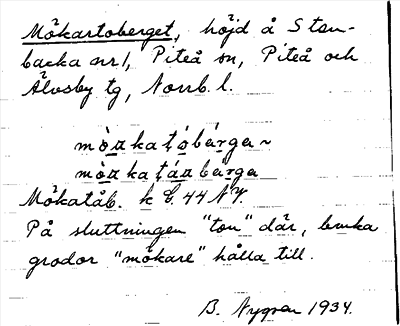 Mökartoberget, höjd å Sten-
backa nr 1, Piteå sn, Piteå och
Älvsby tg, Norrb. l.
mò̤ɑkatǫ́bárga~
mò̤ɑkatá̤ɑbä́rga
Mökatåb. k E. 44 NV.
På sluttningen "ton" där, bruka
grodor "mökare" hålla till.
B. Nygren 1934.